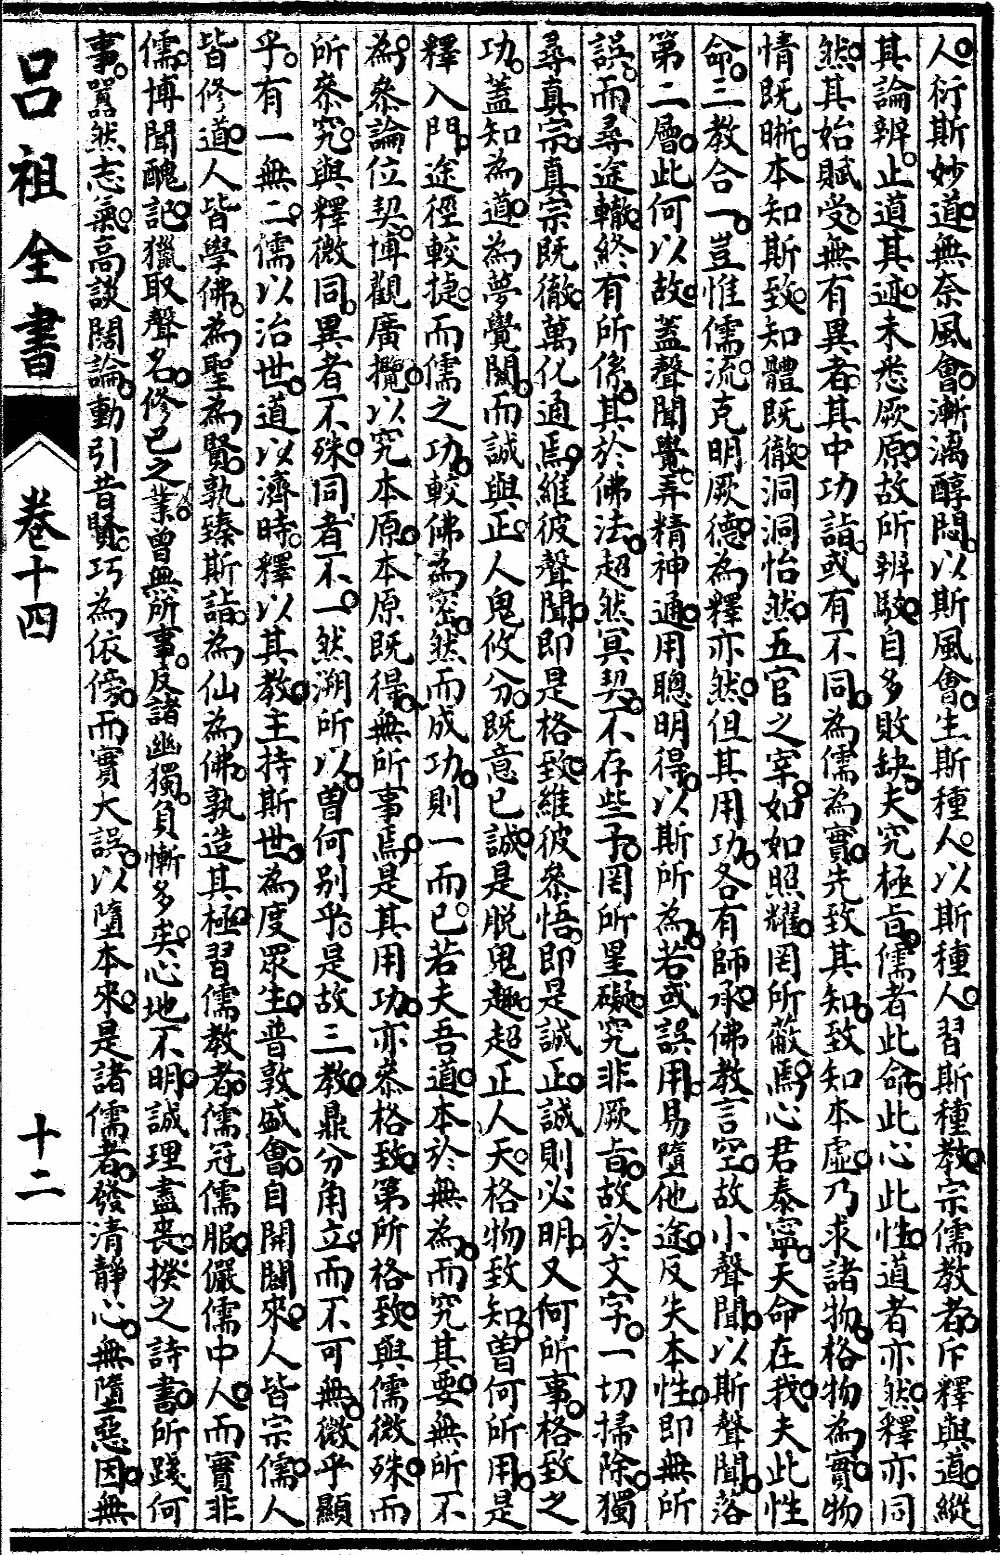 人衍斯妙道無奈風會漸漓醇悶以斯風會生斯種人以斯種人習斯種教宗儒教者斥釋與道縱
其論辨止道其迹未悉厥原故所辨駮自多敗缺夫究極旨儒者此命此心此性道者亦然釋亦同
然其始賦受無有異者其中功詣或有不同為儒為實先致其知致知本虛乃求諸物格物為實物
情既晰本知斯致知體既徹洞洞怡然五官之宰如如照耀罔所蔽焉心君泰寧天命在我夫此性
命三教合一豈惟儒流克明厥德為釋亦然但其用功各有師承佛教言空故小聲聞以斯聲聞落
第二層此何以故蓋聲聞覺弄精神通用聰明得以斯所為若或誤用易墮他途反失本性即無所
誤而尋途轍終有所係其於佛法超然冥契不存些子罔所罣礙究非厥旨故於文字一切掃除獨
尋真宗真宗既徹萬化通焉維彼聲聞即是格致維彼參悟即是誠正誠則必明又何所事格致之
功蓋知為道為夢覺關而誠與正人鬼攸分既意已誠是脫鬼趣超正人天格物致知曾何所用是
釋入門途徑較捷而儒之功較佛為密然而成功則一而已若夫吾道本於無為而究其要無所不
為參論位契博觀廣攬以究本原本原既得無所事焉是其用功亦參格致第所格致與儒微殊而
所參究與釋微同異者不殊同者不一然溯所以曾何别乎是故三教鼎分角立而不可無微乎顯
乎有一無二儒以治世道以濟時釋以其教主持斯世為度眾生普敦盛會自開闢來人皆宗儒人
皆修道人皆學佛為聖為賢孰臻斯詣為仙為佛孰造其極習儒教者儒冠儒服儼儒中人而實非
儒博聞醜記獵取聲名修己之業曾無所事反諸幽獨負慚多矣心地不明誠理盡喪揆之詩書所踐何
事囂然志氣高談闊論動引昔賢巧為依傍而實大誤以墮本來是諸儒者發清靜心無墮惡因無
呂祖全書
卷十四
十二